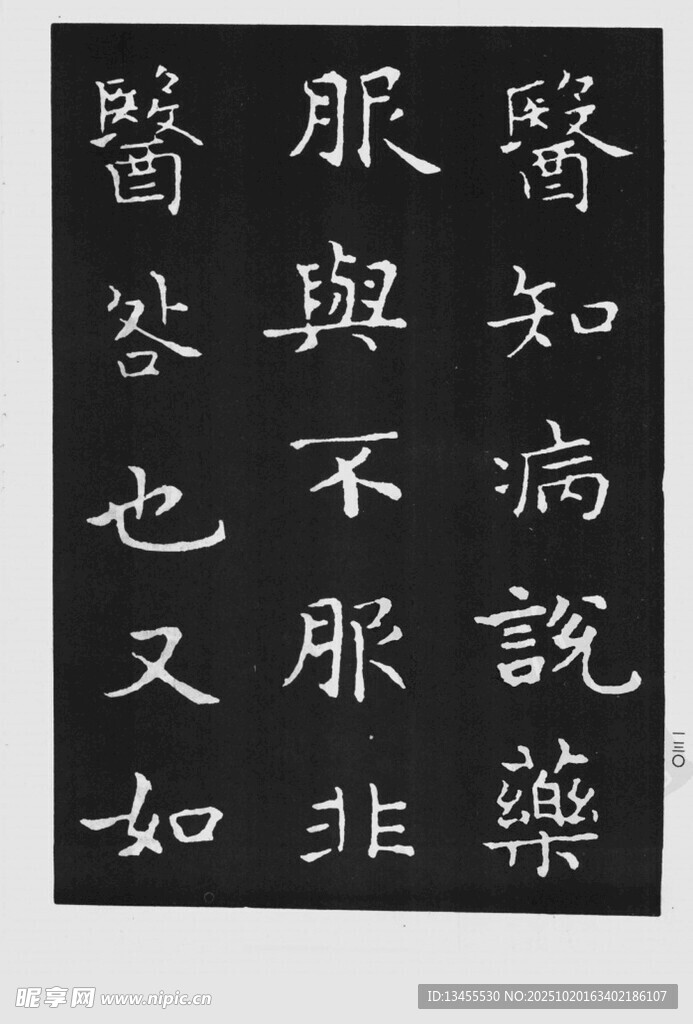 醫知病說藥
服與不服非
醫咎也又如
二三〇
昵享网 www.nipic.cn
ID:13455530 NO:20251020163402186107